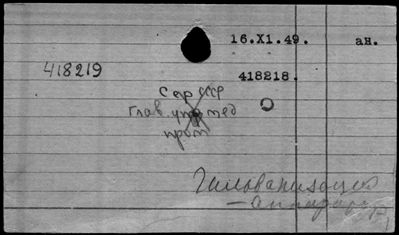 16.XI.49. ан.
418219
418218.
Сар ССР
Глав. упр мед
пром
Гильванизация